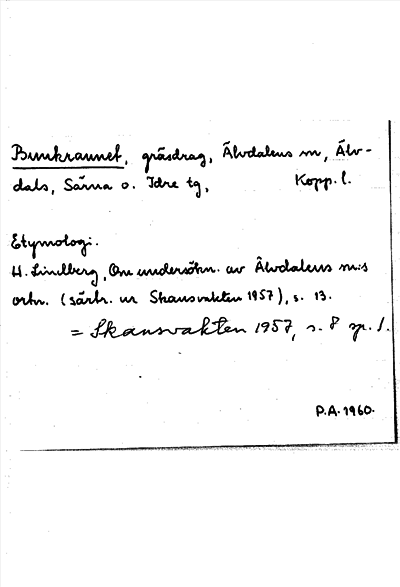 Bunkraunet, gräsdrag, Älvdalens m, Älv-
dals, Särna o. Idre tg, Kopp. l.
Etymologi.
H. Lindberg, Om undersökn. av Älvdalens m:s
ortn. (särtr. ur Skansvakten 1957), s. 13.
= Skansvakten 1957, s. 8 sp. 1.
P.A. 1960.